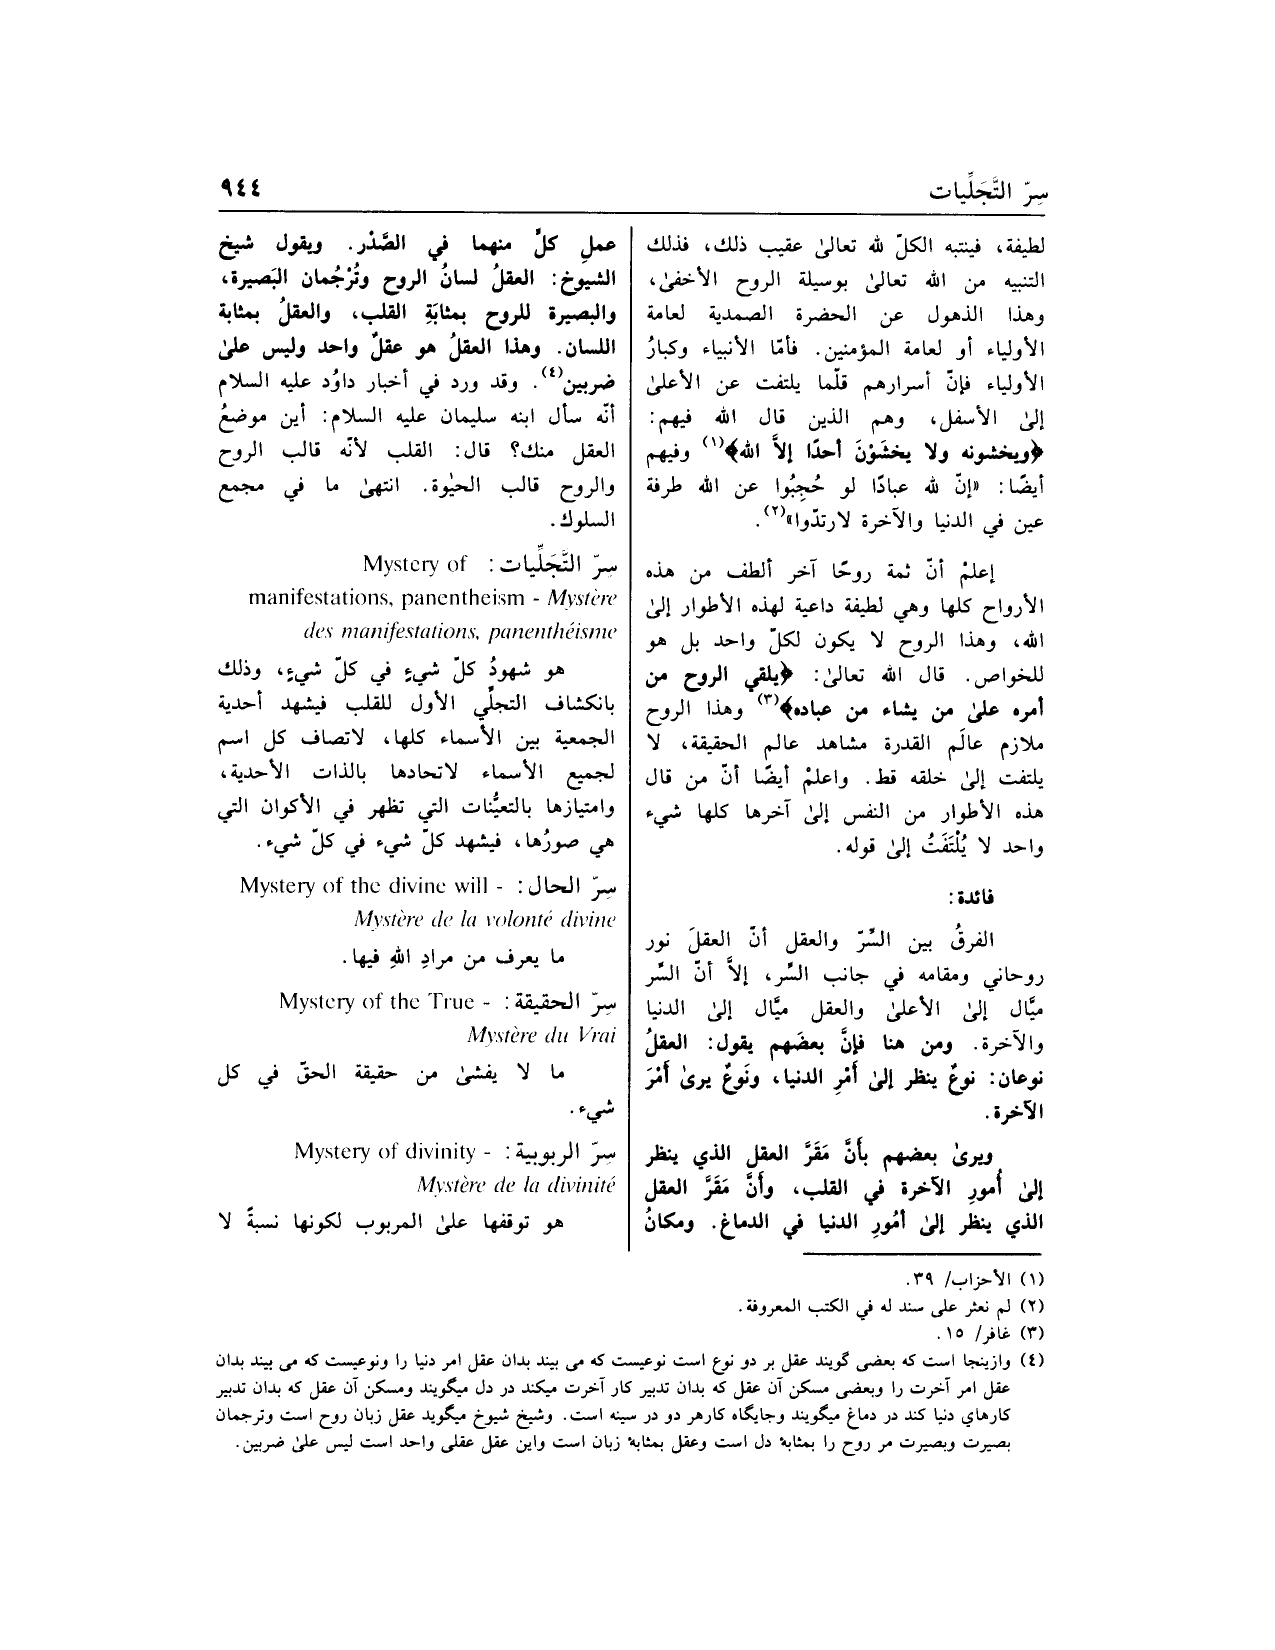 سِرّ التَّجَلِّيات
٩٤٤
لطيفة، فينتبه الكلّ لله تعالىٰ عقيب ذلك، فذلك
التنبيه من الله تعالىٰ بوسيلة الروح الأخفىٰ،
وهذا الذهول عن الحضرة الصمدية لعامة
الأولياء أو لعامة المؤمنين. فأمّا الأنبياء وكبارُ
الأولياء فإنّ أسرارهم قلّما يلتفت عن الأعلىٰ
إلىٰ الأسفل، وهم الذين قال الله فيهم:
﴿ويخشونه ولا يخشَوْنَ أحدًا إلاَّ الله﴾(١) وفيهم
أيضًا: «إنّ لله عبادًا لو حُجِبُوا عن الله طرفة
عين في الدنيا والآخرة لارتدّوا»(٢).
إعلمْ أنّ ثمة روحًا آخر ألطف من هذه
الأرواح كلها وهي لطيفة داعية لهذه الأطوار إلىٰ
الله، وهذا الروح لا يكون لكلّ واحد بل هو
للخواص. قال الله تعالىٰ: ﴿يلقي الروح من
أمره علىٰ من يشاء من عباده﴾(٣) وهذا الروح
ملازم عالَم القدرة مشاهد عالم الحقيقة، لا
يلتفت إلىٰ خلقه قط. واعلمْ أيضًا أنّ من قال
هذه الأطوار من النفس إلىٰ آخرها كلها شيء
واحد لا يُلْتَفَتُ إلىٰ قوله.
فائدة:
الفرقُ بين السِّرّ والعقل أنّ العقلَ نور
روحاني ومقامه في جانب السِّر، إلاَّ أنّ السِّر
ميَّال إلىٰ الأعلىٰ والعقل ميَّال إلىٰ الدنيا
والآخرة. ومن هنا فإنَّ بعضَهم يقول: العقلُ
نوعان: نوعٌ ينظر إلىٰ أَمْرِ الدنيا، ونَوعٌ يرىٰ أَمْرَ
الآخرة.
ويرىٰ بعضهم بأَنَّ مَقَرَّ العقل الذي ينظر
إلىٰ أُمورِ الآخرة في القلب، وأَنَّ مَقَرَّ العقل
الذي ينظر إلىٰ أمُورِ الدنيا في الدماغ. ومكانُ
عملِ كلٍّ منهما في الصَّدْر. ويقول شيخ
الشيوخ: العقلُ لسانُ الروح وتُرْجُمان البَصيرة،
والبصيرة للروح بمثابَةِ القلب، والعقلُ بمثابة
اللسان. وهذا العقلُ هو عقلٌ واحد وليس علىٰ
ضربين(٤). وقد ورد في أخبار داوُد عليه السلام
أنّه سأل ابنه سليمان عليه السلام: أين موضعُ
العقل منك؟ قال: القلب لأنّه قالب الروح
والروح قالب الحيٰوة. انتهىٰ ما في مجمع
السلوك.
سِرّ التَّجَلِّيات: Mystery of
manifestations, panentheism - Mystère
des manifestations, panenthéisme
هو شهودُ كلّ شيءٍ في كلّ شيءٍ، وذلك
بانكشاف التجلِّي الأول للقلب فيشهد أحدية
الجمعية بين الأسماء كلها، لاتصاف كل اسم
لجميع الأسماء لاتحادها بالذات الأحدية،
وامتيازها بالتعيُّنات التي تظهر في الأكوان التي
هي صورُها، فيشهد كلّ شيء في كلّ شيء.
سِرّ الحال: Mystery of the divine will -
Mystère de la volonté divine
ما يعرف من مرادِ اللهِ فيها.
سِرّ الحقيقة: Mystery of the True -
Mystère du Vrai
ما لا يفشىٰ من حقيقة الحقّ في كل
شيء.
سِرّ الربوبية: Mystery of divinity -
Mystère de la divinité
هو توقفها علىٰ المربوب لكونها نسبةً لا
(١) الأحزاب/ ٣٩.
(٢) لم نعثر على سند له في الكتب المعروفة.
(٣) غافر/ ١٥.
(٤) وازينجا است كه بعضى گويند عقل بر دو نوع است نوعيست كه مى بيند بدان عقل امر دنيا را ونوعيست كه مى بيند بدان
عقل امر آخرت را وبعضى مسكن آن عقل كه بدان تدبير كار آخرت ميكند در دل ميگويند ومسكن آن عقل كه بدان تدبير
كارهاي دنيا كند در دماغ ميگويند وجايگاه كارهر دو در سينه است. وشيخ شيوخ ميگويد عقل زبان روح است وترجمان
بصيرت وبصيرت مر روح را بمثابۀ دل است وعقل بمثابۀ زبان است واين عقل عقلى واحد است ليس علىٰ ضربين.